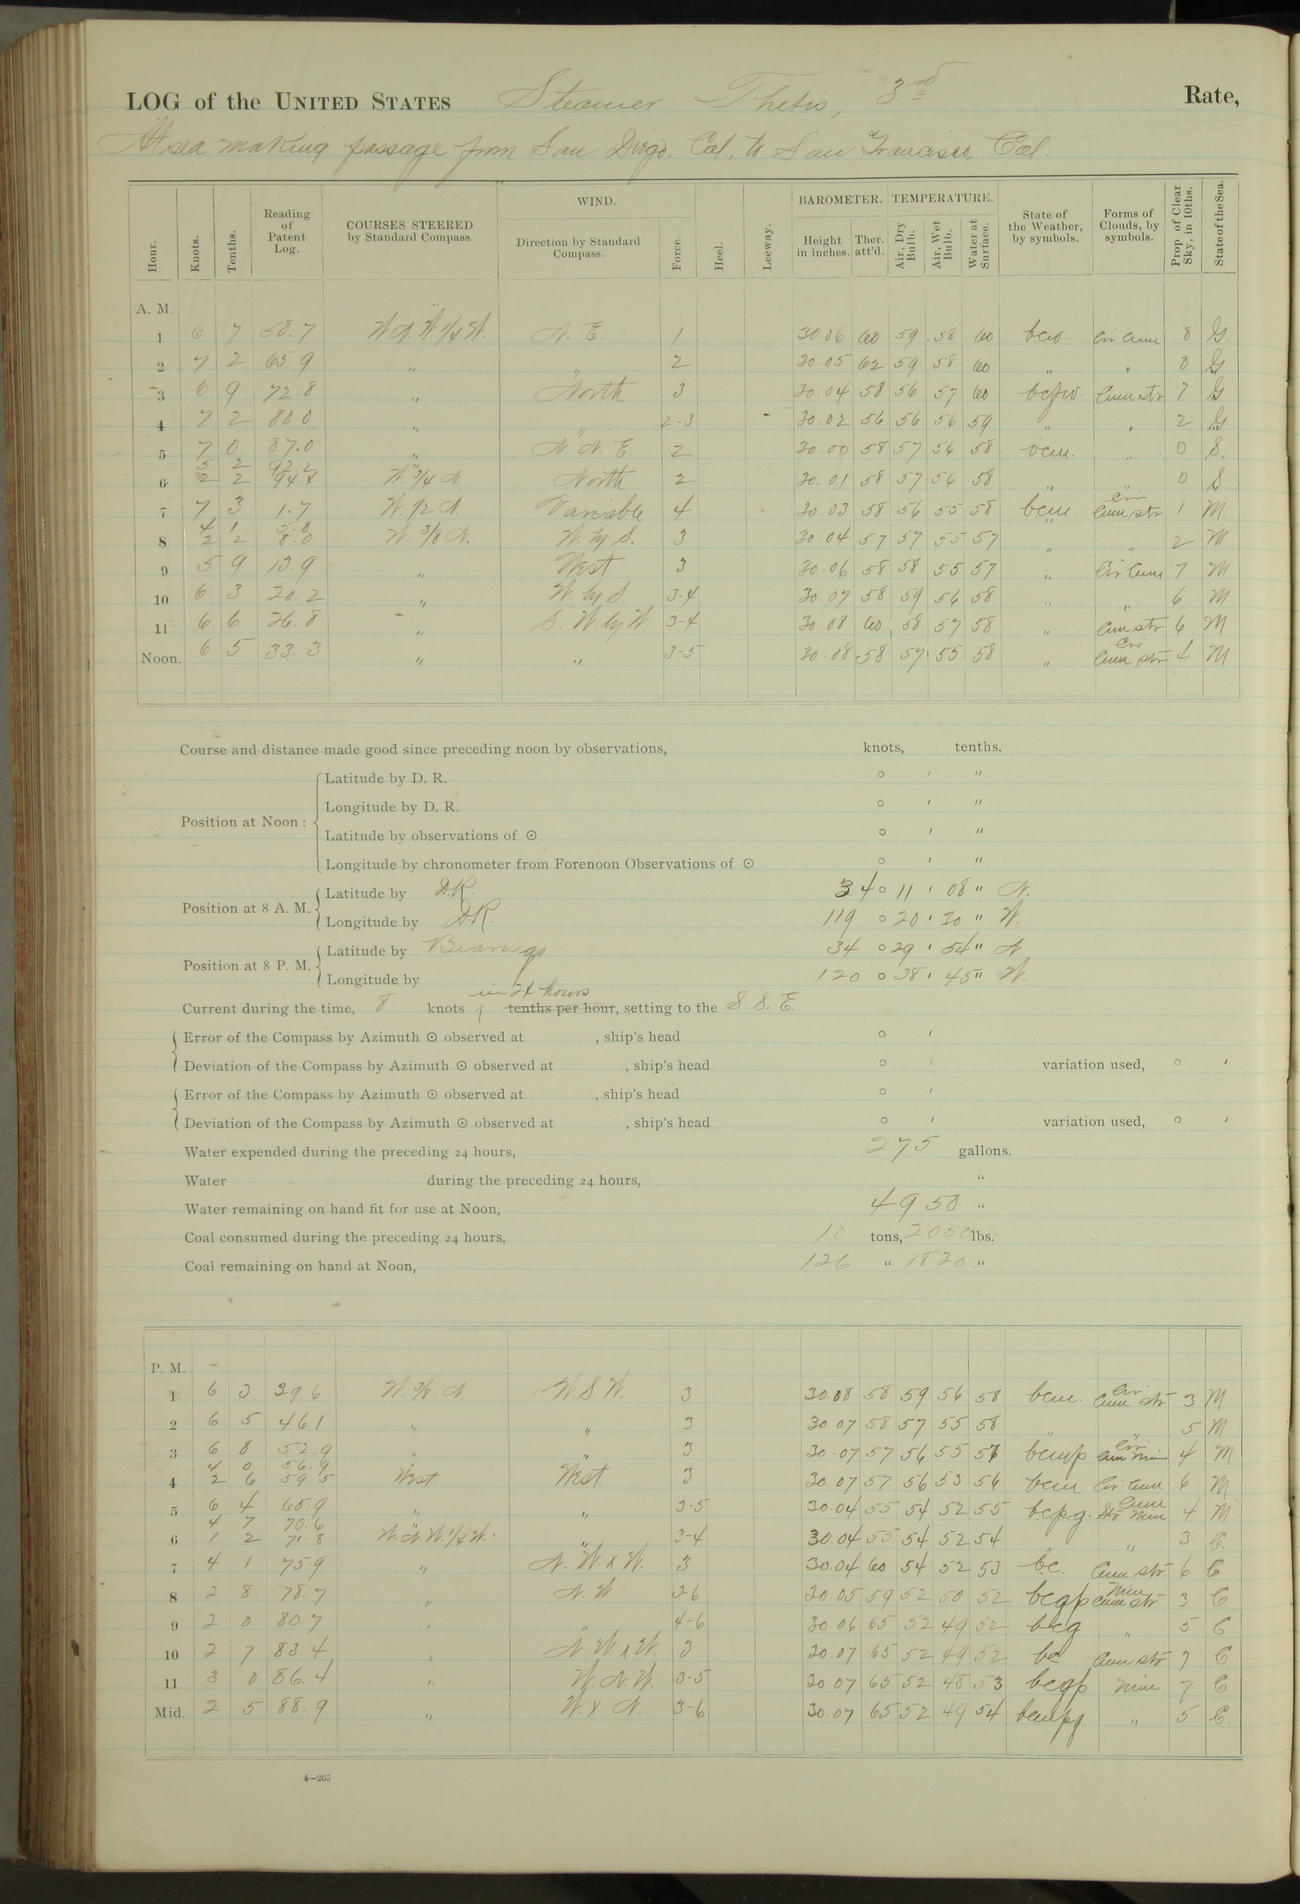 LOG of the UNITED STATES Steamer Thetis, 3rd Rate,
At sea making passage from San Diego, Cal. to San Francisco Cal.
Hour. Knots. Tenths. Reading of Patent Log. COURSES STEERED by Standard Compass. WIND. Direction by Standard Compass. Force. Heel. Leeway. BAROMETER. Height in inches. Ther. att'd. TEMPERATURE. Air, Dry Bulb. Air, Wet Bulb. Water at Surface. State of the Weather, by symbols. Forms of Clouds, by symbols. Prop. of Clear Sky, in 10ths. State of the Sea.
A. M.
1 6 7 58.7 W.N.W 1/4 W. N. E. 1 30.06 60 59 58 60 bcw cir cum 8 G.
2 7 2 65.9 " " 2 30.05 62 59 58 60 " " 8 G
3 6 9 72.8 " North 3 30.04 58 56 57 60 bcfw. cum str 7 G
4 7 2 80.0 " " 2-3 30.02 56 56 56 59 " " 2 G
5 7 0 87.0 " N. N. E. 2 30.00 58 57 56 58 ocm. " 0 S.
5 2 92.2
6 2 2 94.4 W. 3/4 N. North 2 30.01 58 57 56 58 " " 0 S
7 7 3 1.7 W. 1/2 N. Variable 4 30.03 58 56 55 58 bcm. cir cum str 1 M.
4 1 5.8
8 2 2 8.0 W. 3/8 N. W. by S. 3 30.04 57 57 55 57 " " 2 M
9 5 9 13.9 " West 3 30.06 58 58 55 57 " Cir Cum 7 M
10 6 3 20.2 " W. by S. 3-4 30.07 58 59 56 58 " " 6 M
11 6 6 26.8 " S. W. by W. 3-4 30.08 60 58 57 58 " cum str 6 M
Noon. 6 5 33.3 " " 3-5 30.08 58 57 55 58 " cir cum str 4 M
Course and distance made good since preceding noon by observations, knots, tenths.
Position at Noon: Latitude by D. R. ° ' "
Longitude by D. R. ° ' "
Latitude by observations of ☉ ° ' "
Longitude by chronometer from Forenoon Observations of ☉ ° ' "
Position at 8 A. M. Latitude by D.R. 34 ° 11 ' 08 " N.
Longitude by D.R. 119 ° 20 ' 30 " W.
Position at 8 P. M. Latitude by Bearings 34 ° 29 ' 54 " N
Longitude by 120 ° 38 ' 45 " W.
in 24 hours
Current during the time, 8 knots tenths per hour, setting to the S. S. E.
Error of the Compass by Azimuth ☉ observed at , ship's head ° '
Deviation of the Compass by Azimuth ☉ observed at , ship's head ° ' variation used, ° '
Error of the Compass by Azimuth ☉ observed at , ship's head ° '
Deviation of the Compass by Azimuth ☉ observed at , ship's head ° ' variation used, ° '
Water expended during the preceding 24 hours, 275 gallons.
Water during the preceding 24 hours, "
Water remaining on hand fit for use at Noon, 4950 "
Coal consumed during the preceding 24 hours, 10 tons, 2050 lbs.
Coal remaining on hand at Noon, 126 " 1820 "
P. M.
1 6 3 39 6 W. 3/8 N W.S.W. 3 30.08 58 59 56 58 bcm. cir cum str 3 M
2 6 5 46.1 " " 3 30 07 58 57 55 58 " " 5 M
3 6 8 52.9 " " 3 30.07 57 56 55 57 bcmp cir cum nim 4 M
4 0 56.9
4 2 6 59 5 West West. 3 30.07 57 56 53 56 bcm Cir Cum 6 M
5 6 4 65.9 " " 3-5 30.04 55 54 52 55 bcpg. cum str nim 4 M
4 7 70.6
6 1 2 71.8 W.N.W. 1/4 W. " 3-4 30.04 55 54 52 54 " " 3 C.
7 4 1 75.9 " N. W. x W. 3 30.04 60 54 52 53 bc. Cum str. 6 C
8 2 8 78.7 " N. W 2 6 30.05 59 52 50 52 bcqp nim cum str 3 C
9 2 0 80.7 " " 4-6 30.06 65 52 49 52 bcq " 5 C
10 2 7 83.4 " N. W. x W. 3 30.07 65 52 49 52 bc cum str 7 C
11 3 0 86.4 " W. N. W. 3-5 30.07 65 52 48 53 bcqp nim 7 C
Mid. 2 5 88.9 " W. x N. 3-6 30.07 65 52 49 54 bcmpq " 5 C.
4—265